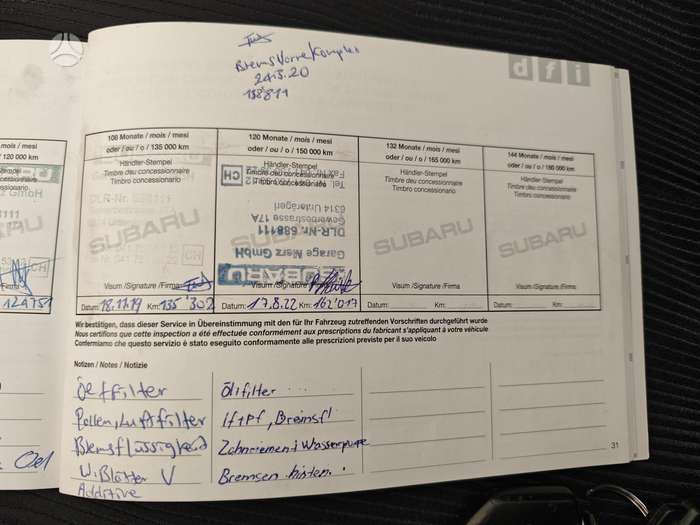 Brems Vorne Komplet
24.3.20
138811
dfi
120 000 km
Händler-Stempel
CH
Firma
124751
Oel
108 Monate / mois / mesi
oder / ou / o / 135 000 km
Händler-Stempel
Timbre du concessionnaire
Timbro concessionario
DLR-Nr. 688111
SUBARU
CH
Visum /Signature /Firma
Datum: 18.11.19 Km: 135'302
120 Monate / mois / mesi
oder / ou / o / 150 000 km
Händler-Stempel
Timbre du concessionnaire
Timbro concessionario
CH
6314 Unterägeri
Gewerbestrasse 17A
DLR-Nr. 688111
Garage Merz GmbH
SUBARU
Visum /Signature /Firma
Datum: 17.8.22 Km: 162'017
132 Monate / mois / mesi
oder / ou / o / 165 000 km
Händler-Stempel
Timbre du concessionnaire
Timbro concessionario
SUBARU
Visum /Signature /Firma
Datum: Km:
144 Monate / mois / mesi
oder / ou / o / 180 000 km
Händler-Stempel
Timbre du concessionnaire
Timbro concessionario
SUBARU
Visum /Signature /Firma
Datum: Km:
Wir bestätigen, dass dieser Service in Übereinstimmung mit den für Ihr Fahrzeug zutreffenden Vorschriften durchgeführt wurde
Nous certifions que cette inspection a été effectuée conformément aux prescriptions du fabricant s'appliquant à votre véhicule
Confermiamo che questo servizio è stato eseguito conformemente alle prescrizioni previste per il suo veicolo
Notizen / Notes / Notizie
Oelfilter
Pollen, Luftfilter
Bremsflüssigkeid
W. Blätter V
Additive
Ölfilter
Bremsfl
Zahnriemen Wasserpumpe
Bremsen hinten.
31